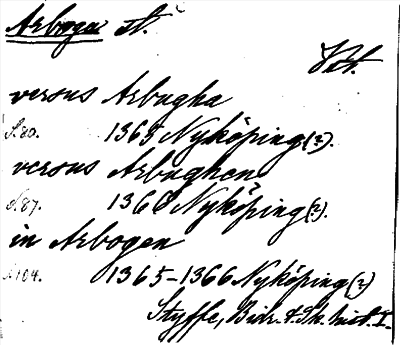 Arboga st.
Vstm.
versus Arbugha
S. 80. 1365 Nyköping (?).
versus Arbughen
S. 87. 1366 Nyköping (?).
in Arbogen
S. 104. 1365-1366 Nyköping (?)
Styffe, Bidr. t. Sk. hist. I.